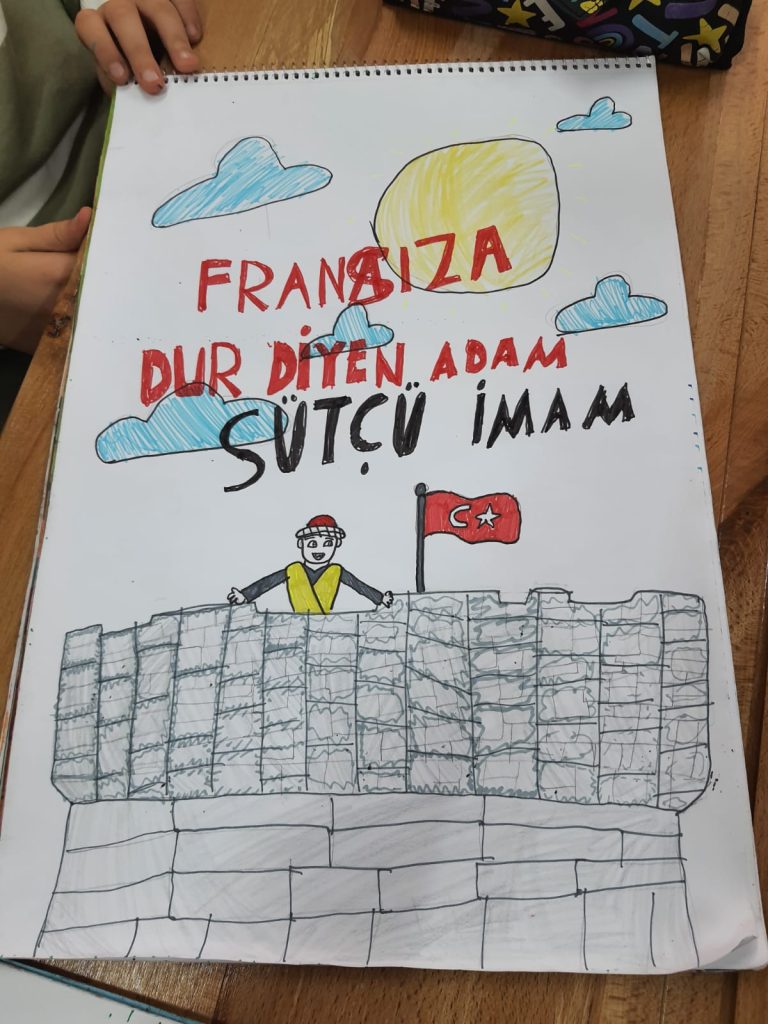 FRANSIZA
DUR DİYEN ADAM
SÜTÇÜ İMAM